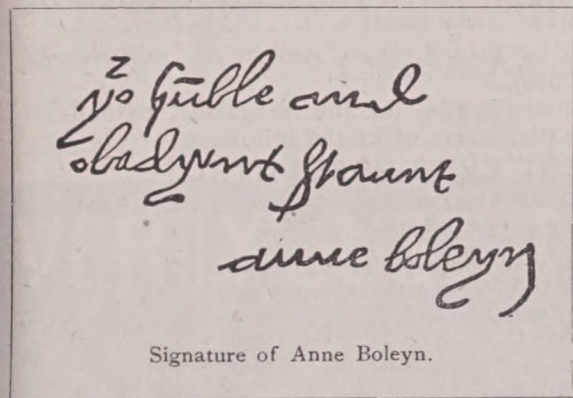 yoʳ hūble and
obedyent ſvaunt
anne boleyn
Signature of Anne Boleyn.